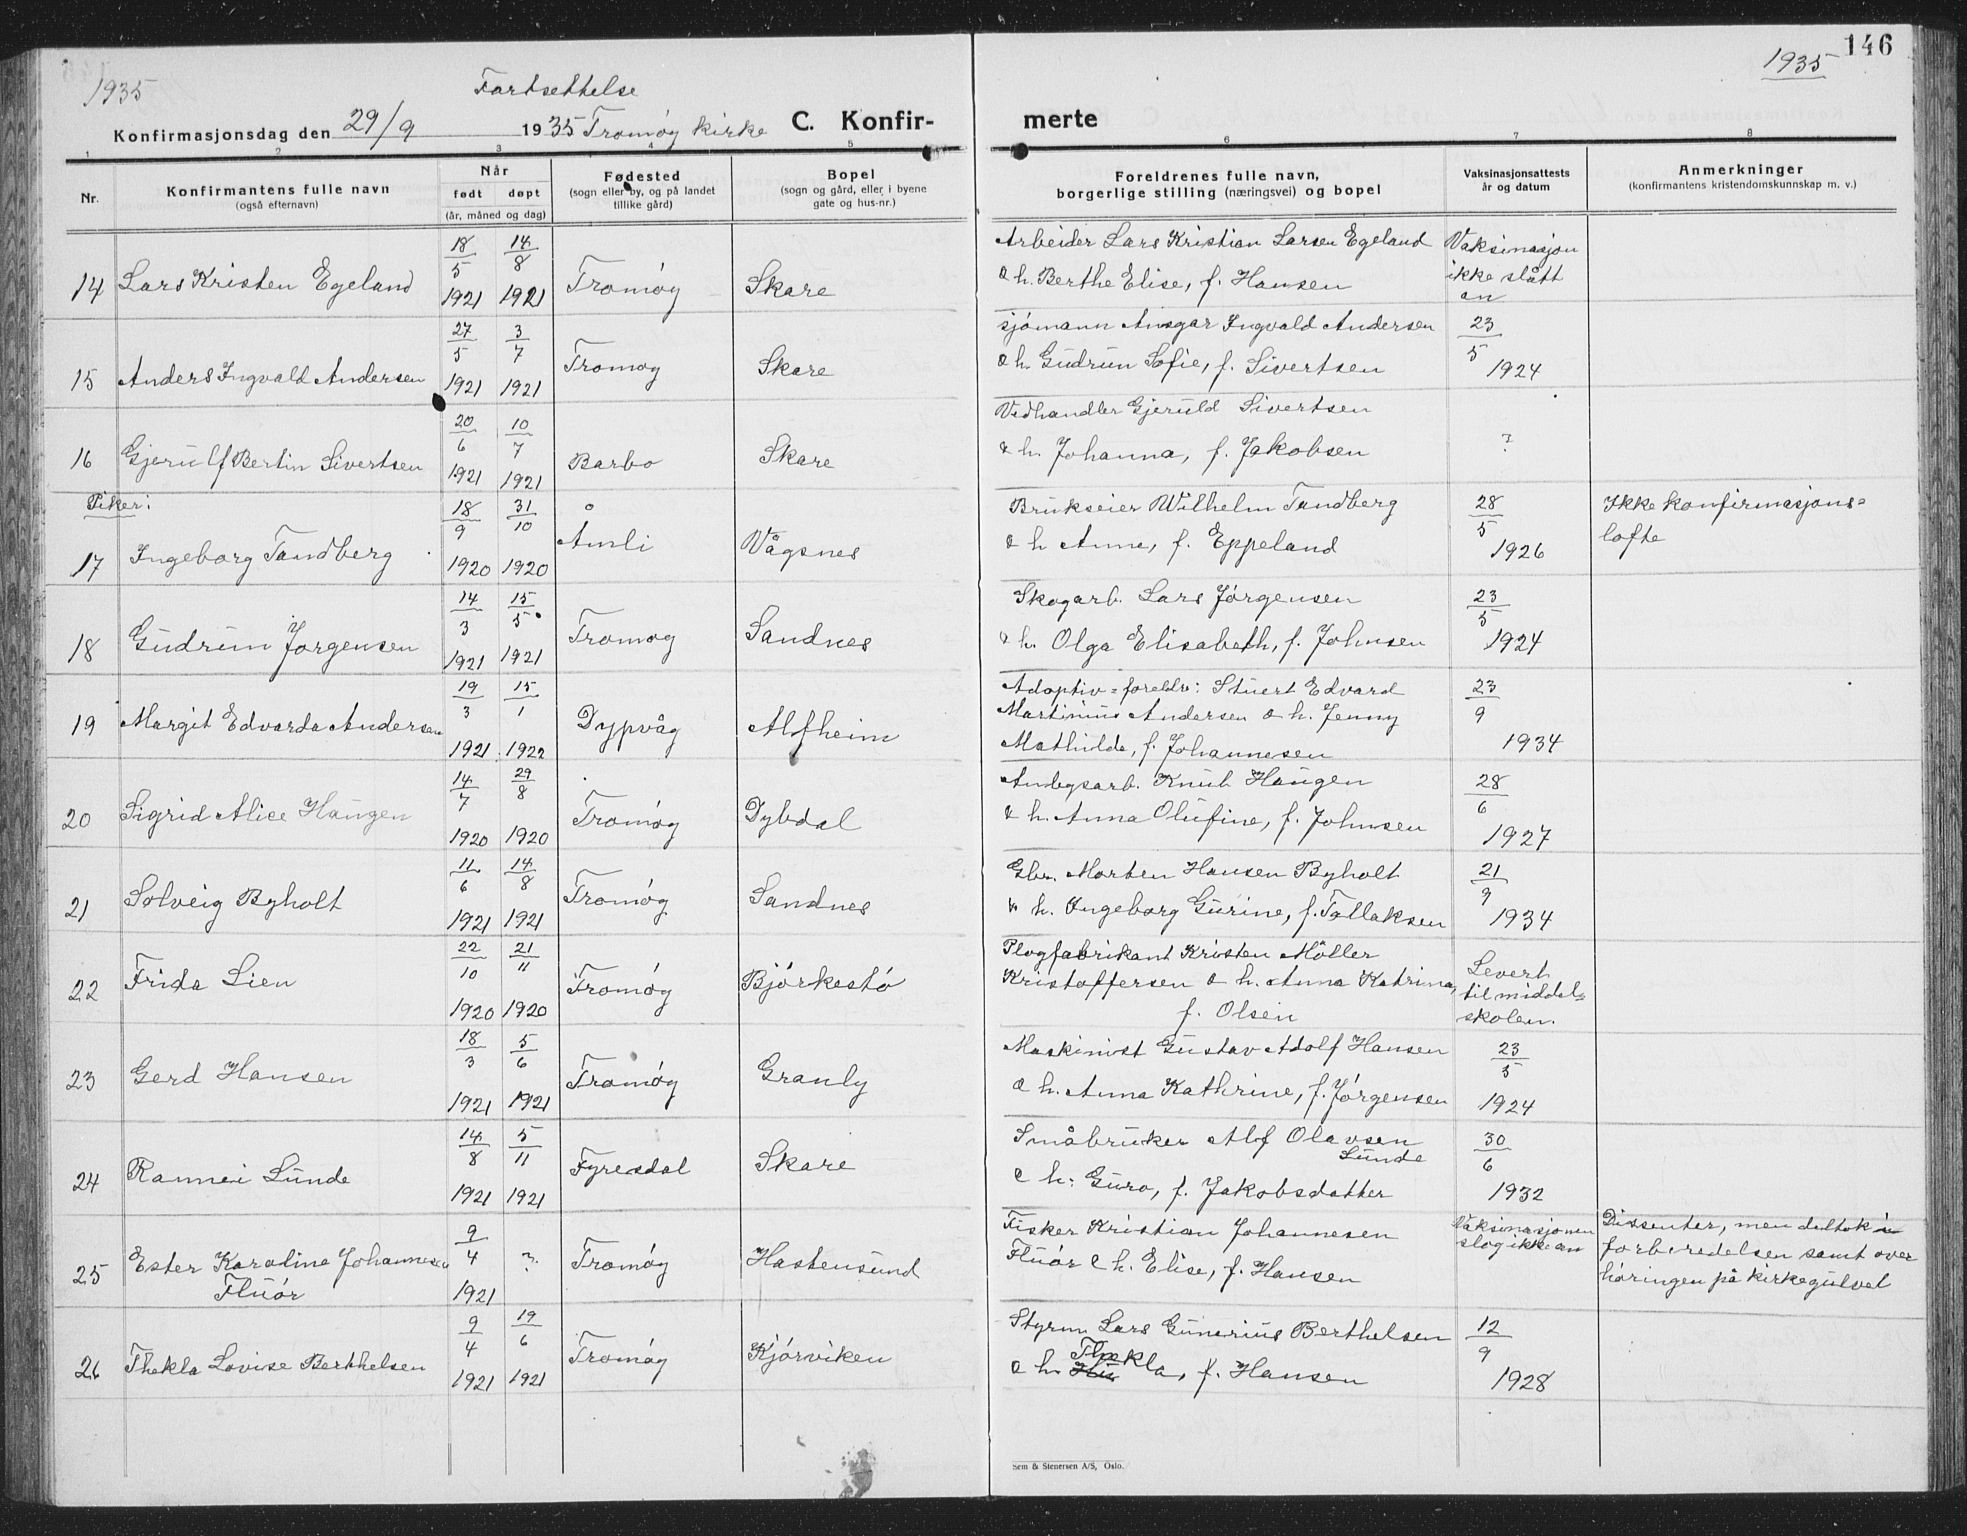 1935
Fortsettelse
Konfirmasjonsdag den 29/9 1935 Tromøy kirke
C. Konfir-
1 2 3 4 5
Nr.
Konfirmantens fulle navn
(også efternavn)
Når
født døpt
(år, måned og dag)
Fødested
(sogn eller by, og på landet
tillike gård)
Bopel
(sogn og gård, eller i byene
gate og hus-nr.)
14 Lars Kristen Egeland 18/5 1921 14/8 1921 Tromøy Skare
15 Anders Ingvald Andersen 27/5 1921 3/7 1921 Tromøy Skare
16 Gjerulf Bertin Sivertsen 20/6 1921 10/7 1921 Barbo Skare
Piker:
17 Ingeborg Tandberg 18/9 1920 31/10 1920 Åmli Vågsnes
18 Gudrun Jørgensen 14/3 1921 15/5 1921 Tromøy Sandnes
19 Margit Edvarda Andersen 19/3 1921 15/1 1922 Dypvåg Alfheim
20 Sigrid Alice Haugen 14/7 1920 29/8 1920 Tromøy Dybdal
21 Solveig Byholt 11/6 1921 14/8 1921 Tromøy Sandnes
22 Frida Lien 22/10 1920 21/11 1920 Tromøy Bjørkestø
23 Gerd Hansen 18/3 1921 5/6 1921 Tromøy Granly
24 Rannei Sunde 14/8 1921 5/11 1921 Fyresdal Skare
25 Ester Karoline Johannesen 9/4 1921 ? Tromøy Hastensund
Fluør
26 Thekla Lovise Berthelsen 9/4 1921 19/6 1921 Tromøy Kjørviken
1935
146
merte
6 7 8
Foreldrenes fulle navn,
borgerlige stilling (næringsvei) og bopel
Vaksinasjonsattests
år og datum
Anmerkninger
(konfirmantens kristendomskunnskap m. v.)
Arbeider Lars Kristian Larsen Egeland
& h. Berthe Elise, f. Hansen
Vaksinasjon
ikke slått
an
sjømann Ansgar Ingvald Andersen
& h. Gudrun Sofie, f. Sivertsen
23/5 1924
Vedhandler Gjeruld Sivertsen
& h. Johanna, f. Jakobsen
?
Brukseier Wilhelm Tandberg
& h Anne, f. Eppeland
28/5 1926
Ikke konfirmasjons=
løfte
Skogarb. Lars Jørgensen
& h. Olga Elisabeth, f. Johnsen
23/5 1924
Adoptiv=foreldr: Stuert Edvard
Martinius Andersen & h. Jenny
Mathilde, f. Johannesen
23/9 1934
Anlegsarb. Knut Haugen
& h. Anna Olufine, f. Johnsen
28/6 1927
Gbr. Morten Hansen Byholt
& h. Ingeborg Gurine, f. Tallaksen
21/9 1934
Plogfabrikant Kristen Møller
Kristoffersen & h. Anna Katrina,
f. Olsen
Levert
til middel=
skolen.
Maskinist Gustav Adolf Hansen
& h. Anna Kathrine, f. Jørgensen
23/5 1924
Småbruker Alf Olavsen
Sunde
& h: Guro, f. Jakobsdatter
30/6 1932
Fisker Kristian Johannesen
Fluør & h. Elise, f. Hansen
Vaksinasjonen
slog ikke an
Dissenter, men deltok i
forberedelsen samt over
høringen på kirkegulvet
Styrm Lars Gunerius Berthelsen
& h. Thekla, f. Hansen
12/9 1928
Sem & Stenersen A/S, Oslo.